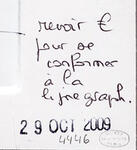 revoir €
pour se
conformer
à la
ligne graph.
29 OCT 2009
4446